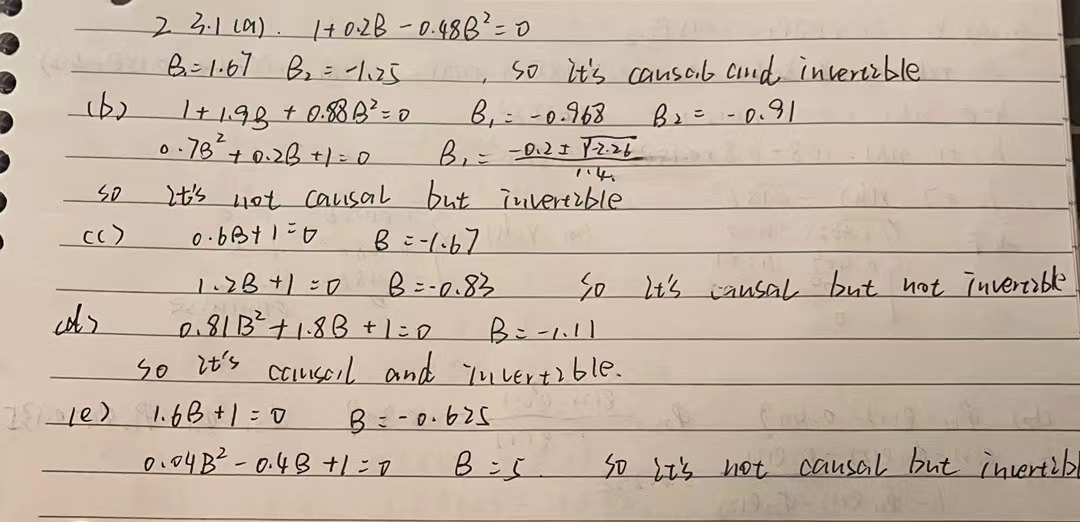 2 3.1 (a). 1+0.2B-0.48B²=0
B₁=1.67 B₂=-1.25 , so it's causal and invertible
(b) 1+1.9B+0.88B²=0 B₁=-0.968 B₂=-0.91
0.7B²+0.2B+1=0 B₁=(-0.2±√-2.26)/1.4.
so it's not causal but invertible
(c) 0.6B+1=0 B=-1.67
1.2B+1=0 B=-0.83 so it's causal but not invertible
(d) 0.81B²+1.8B+1=0 B=-1.11
so it's causal and invertible.
(e) 1.6B+1=0 B=-0.625
0.04B²-0.4B+1=0 B=5. so it's not causal but invertibl